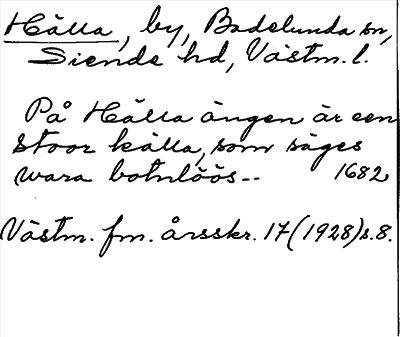 Hälla, by, Badelunda sn,
Siende hd, Västm. l.
På Hälla ängen är een
stoor källa, som säges
wara botnlöös-- 1682
Västm. fm. årsskr. 17 (1928) s. 8.